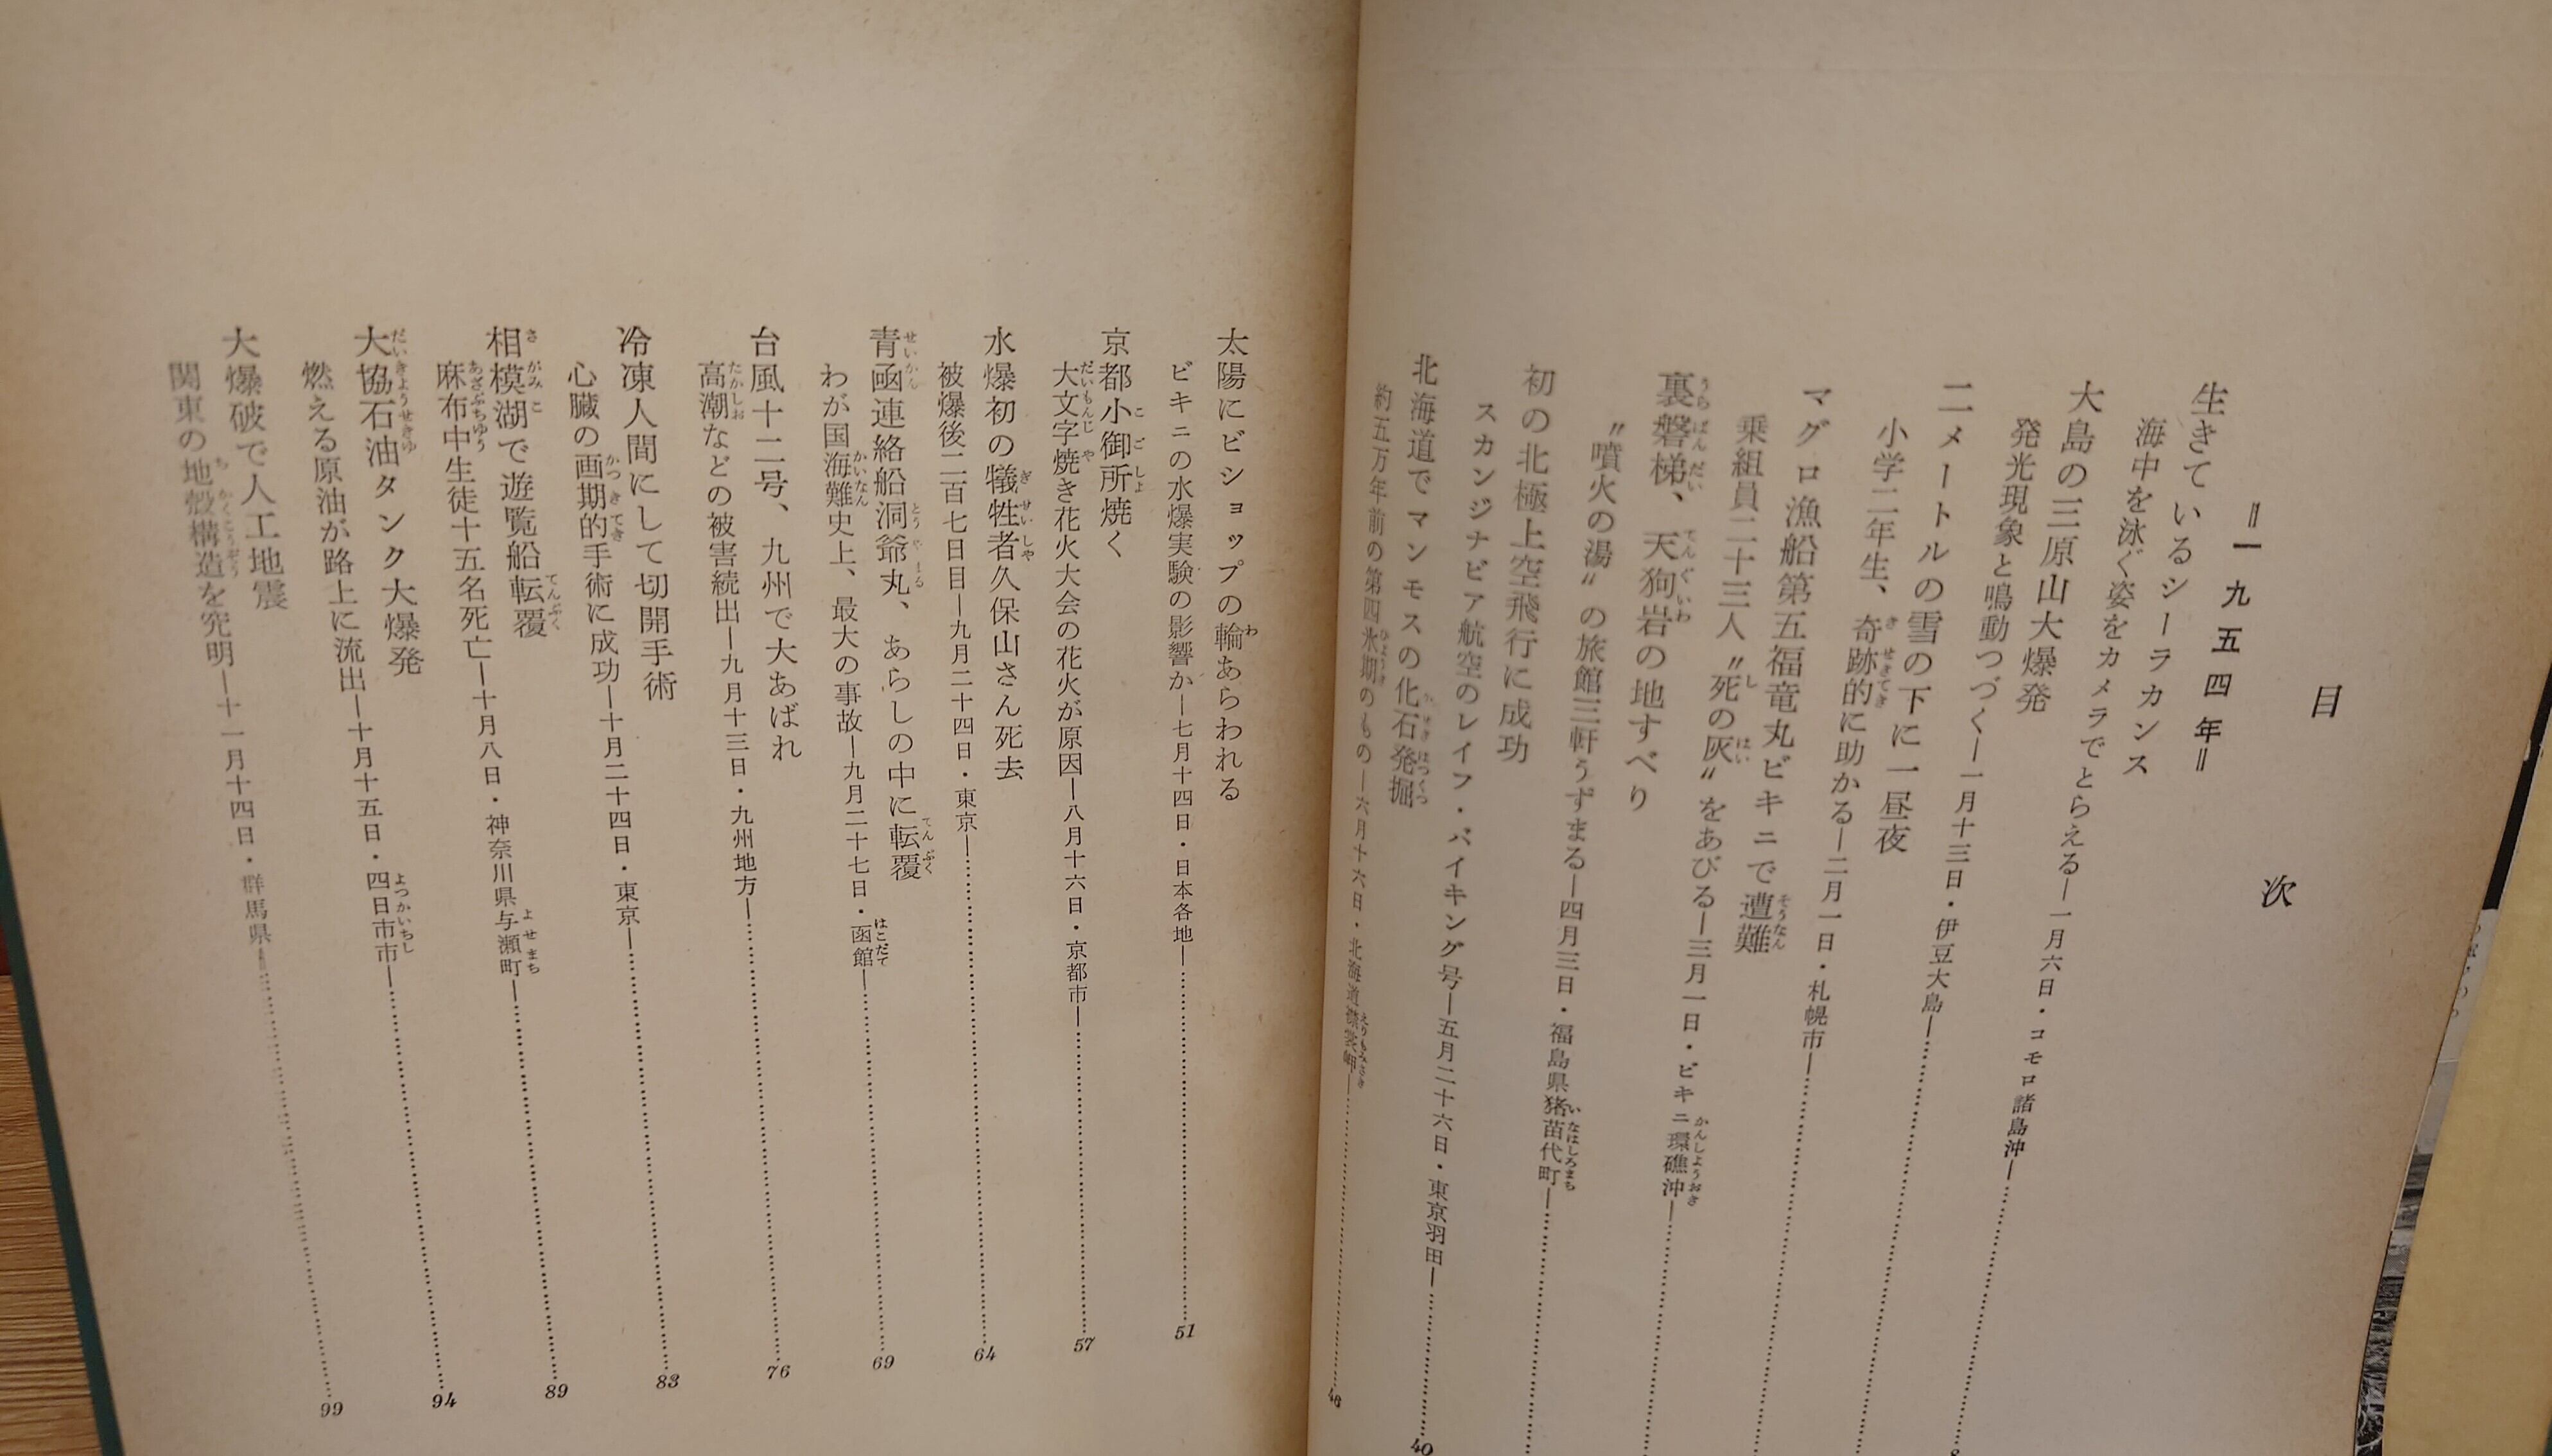 目次
＝一九五四年＝
生きているシーラカンス
海中を泳ぐ姿をカメラでとらえる―一月六日・コモロ諸島沖―
大島の三原山大爆発
発光現象と鳴動つづく―一月十三日・伊豆大島―
二メートルの雪の下に一昼夜
小学二年生、奇跡的に助かる―二月一日・札幌市―
マグロ漁船第五福竜丸ビキニで遭難
乗組員二十三人〝死の灰〟をあびる―三月一日・ビキニ環礁沖―
裏磐梯、天狗岩の地すべり
〝噴火の湯〟の旅館三軒うずまる―四月三日・福島県猪苗代町―
初の北極上空飛行に成功
スカンジナビア航空のレイフ・バイキング号―五月二十六日・東京羽田―40
北海道でマンモスの化石発掘
約五万年前の第四氷期のもの―六月十六日・北海道襟裳岬―46
太陽にビショップの輪あらわれる
ビキニの水爆実験の影響か―七月十四日・日本各地―51
京都小御所焼く
大文字焼き花火大会の花火が原因―八月十六日・京都市―57
水爆初の犠牲者久保山さん死去
被爆後二百七日目―九月二十四日・東京―64
青函連絡船洞爺丸、あらしの中に転覆
わが国海難史上、最大の事故―九月二十七日・函館―69
台風十二号、九州で大あばれ
高潮などの被害続出―九月十三日・九州地方―76
冷凍人間にして切開手術
心臓の画期的手術に成功―十月二十四日・東京―83
相模湖で遊覧船転覆
麻布中生徒十五名死亡―十月八日・神奈川県与瀬町―89
大協石油タンク大爆発
燃える原油が路上に流出―十月十五日・四日市市―94
大爆破で人工地震
関東の地殻構造を究明―十一月十四日・群馬県―99